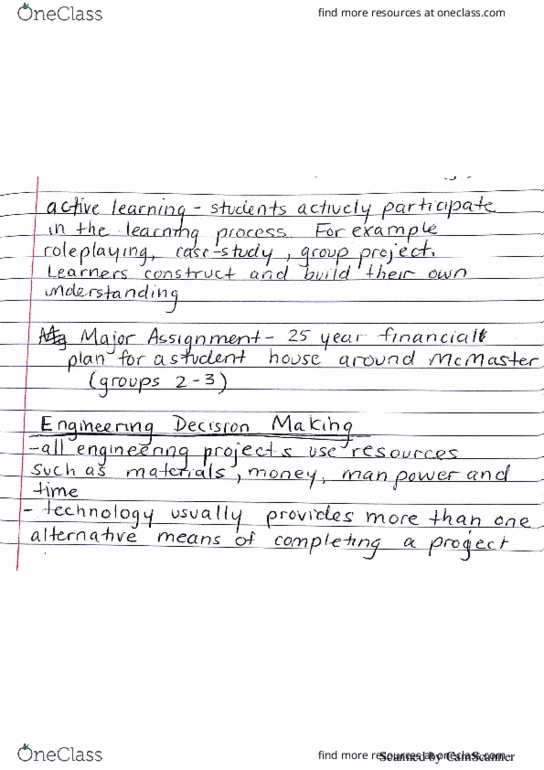 OneClass
find more resources at oneclass.com
active learning - students actively participate
in the learning process. For example
roleplaying, case-study, group project.
Learners construct and build their own
understanding
Major Assignment - 25 year financial
plan for a student house around McMaster
(groups 2-3)
Engineering Decision Making
-all engineering projects use resources
such as materials, money, man power and
time
- technology usually provides more than one
alternative means of completing a project
OneClass
find more resources at oneclass.com
Scanned by CamScanner